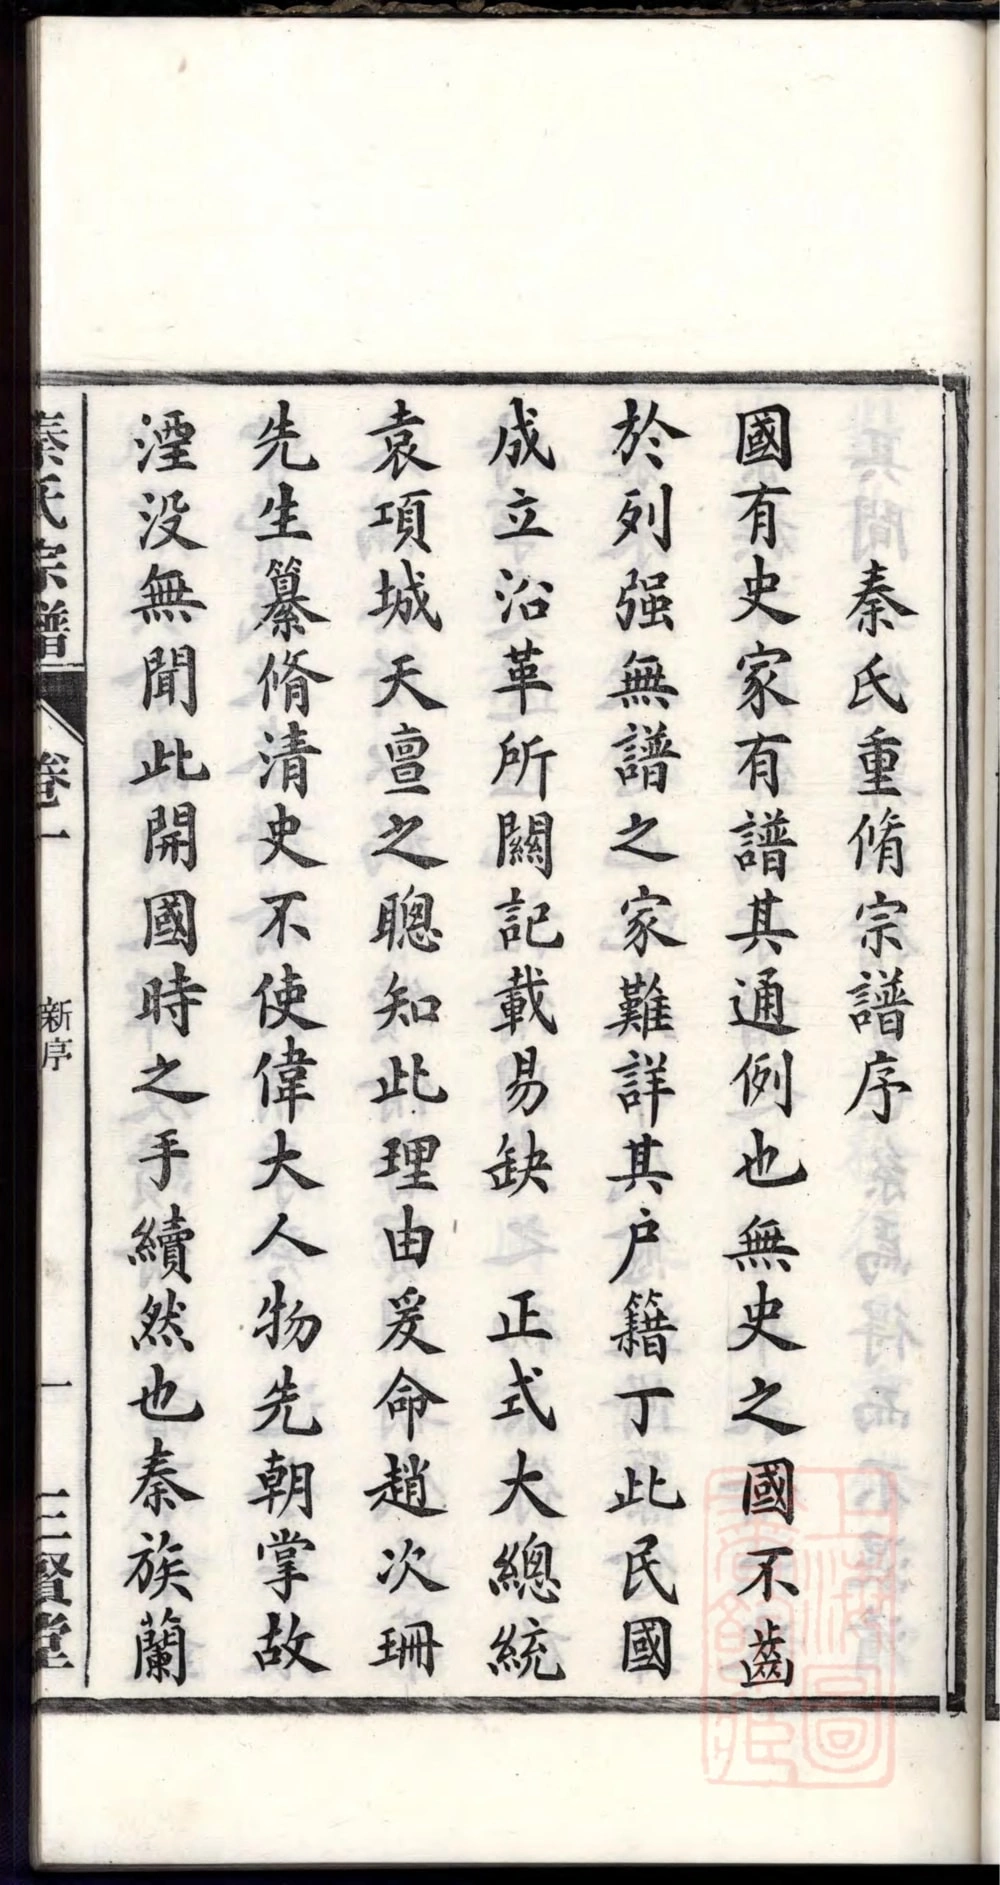 秦氏重脩宗譜序
國有史家有譜其通例也無史之國不齒
於列强無譜之家難詳其户籍丁此民國
成立沿革所關記載易缺 正式大總統
袁項城天亶之聰知此理由爰命趙次珊
先生纂脩清史不使偉大人物先朝掌故
湮没無聞此開國時之手續然也秦族蘭
秦氏宗譜 卷一 新序 一 三賢堂
上海圖書館藏